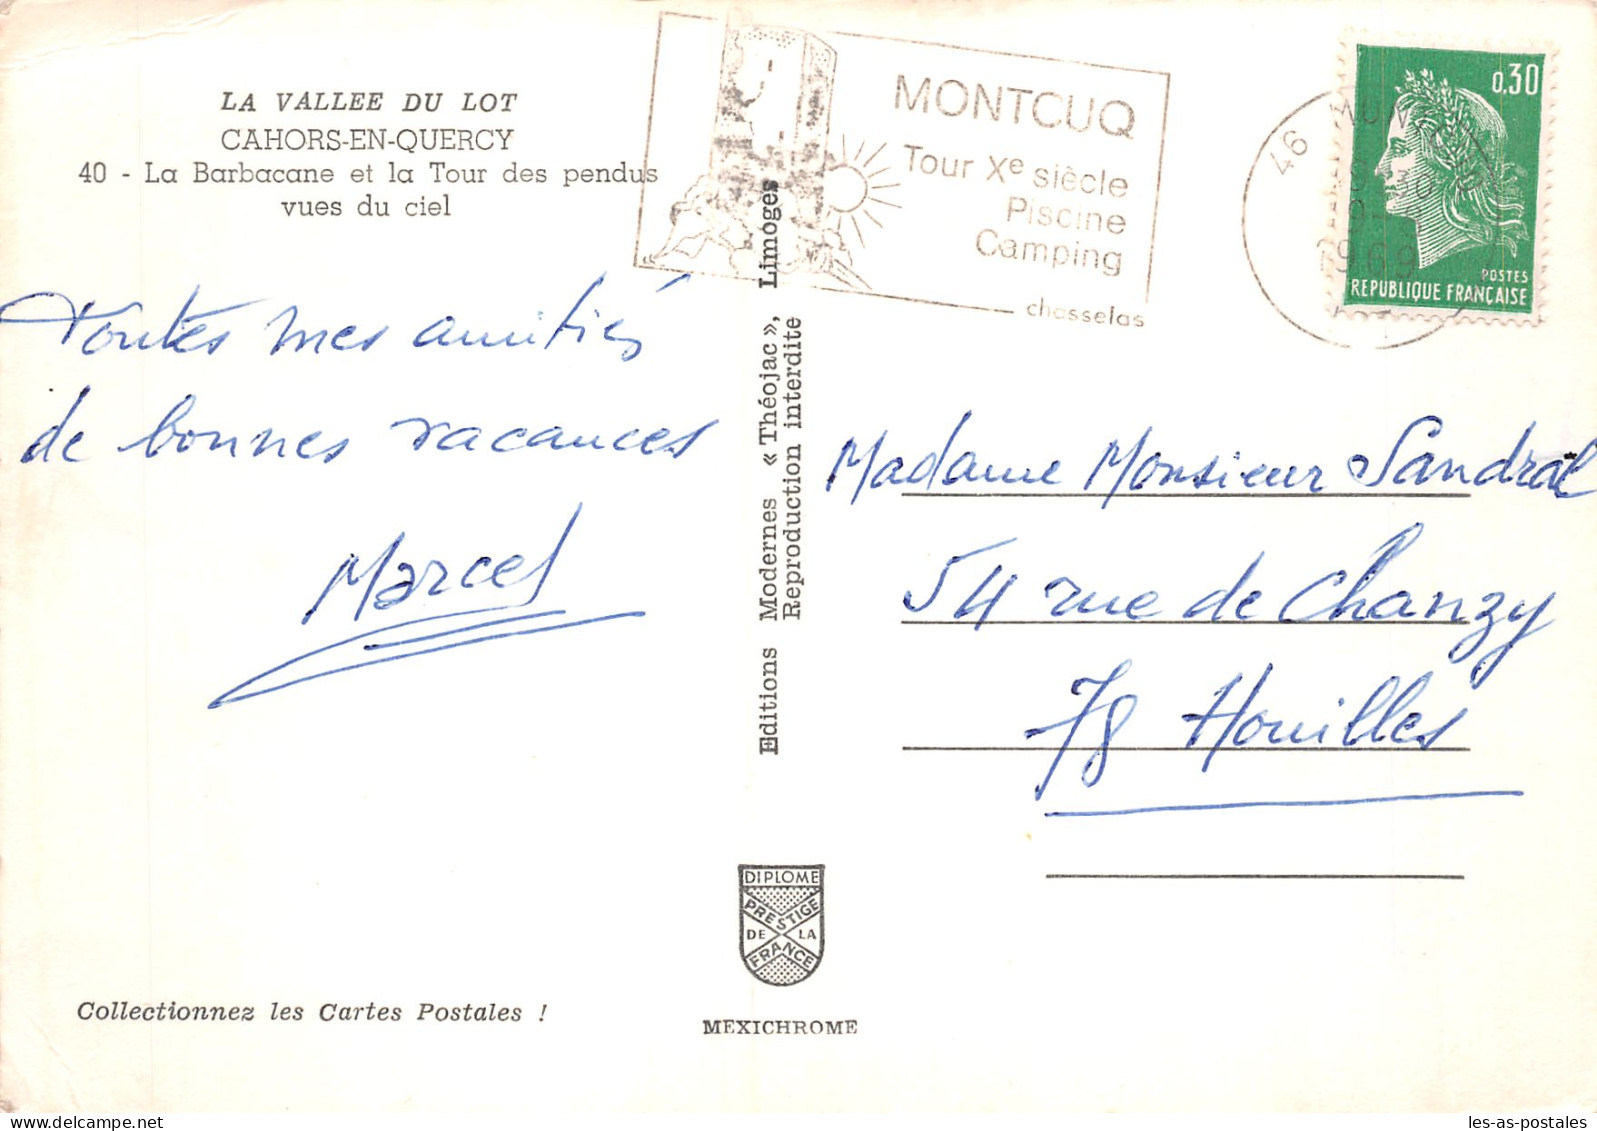 LA VALLEE DU LOT
CAHORS-EN-QUERCY
40 - La Barbacane et la Tour des pendus
vues du ciel
MONTCUQ
Tour Xe siècle
Piscine
Camping
chasselas
46
1969
0.30
POSTES
REPUBLIQUE FRANÇAISE
Toutes mes amitiés
de bonnes vacances
Marcel
Editions Modernes « Théojac », Limoges
Reproduction interdite
Madame Monsieur Sandral
54 rue de Chanzy
78 Houilles
DIPLOME
PRESTIGE
DE LA
FRANCE
Collectionnez les Cartes Postales !
MEXICHROME
les-as-postales